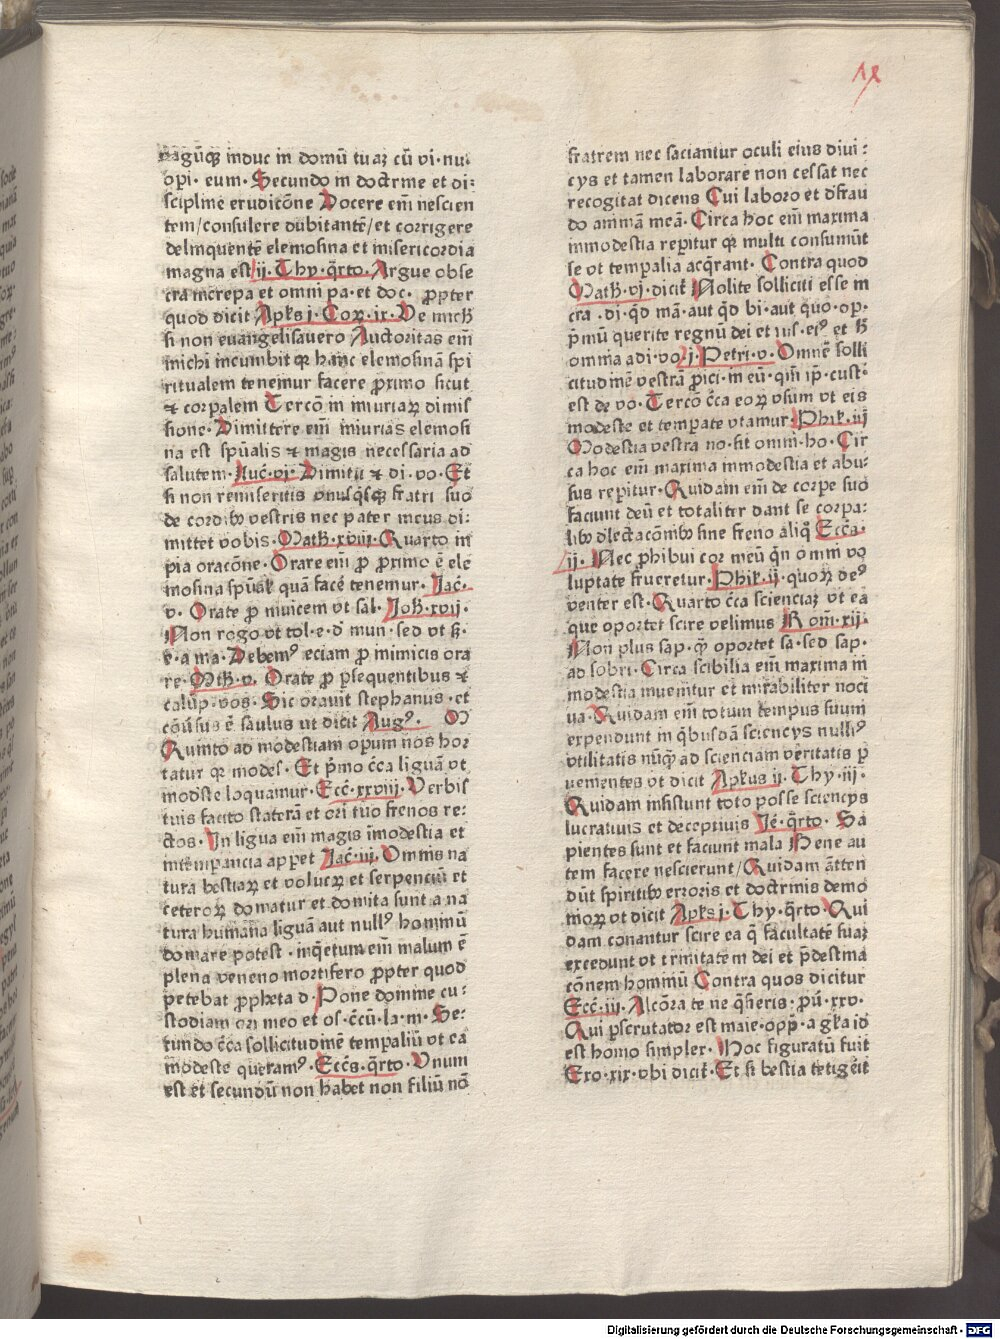 vagūqꝫ induc in domū tuaꝫ cū vi·nu·
opi· eum· Secundo in doctrine et di⸗
scipline eruditōne Docere em̄ nescien
tem/consulere dubitantē/et corrigere
delinquentē elemosina et misericordia
magna est/ij· Thy·q̄rto· Argue obse
cra increpa et omni pa·et doc· ꝓpter
quod dicit Apl̄s j· Coꝝ·ix·Ve mich̄
si non euangelisauero Auctoritas em̄
michi incumbit qꝛ hanc elemosinā spi
ritualem tenemur facere ꝓximo sicut
⁊ corpalem Tercō in iniuriaꝝ dimis
sione·Dimittere em̄ iniurias elemosi
na est spūalis ⁊ magis necessaria ad
salutem·Luc̄·vi·Dimittī ⁊ di·vo·Et
si non remiseritis vnusq̄sqꝫ fratri suo
de cordibꝰ vestris nec pater meus di⸗
mittet vobis·Math̄·xviij·Quarto in
pia oracōne·Orare em̄ ꝓ ꝓximo ē ele
mosina spūal̄ quā facē tenemur·Jac̄·
v· Orate ꝓ inuicem vt sal·Joh̄·xvij·
Non rogo vt tol·e·d̄ mun·sed vt ẜ·
e·a ma·Debemꝰ eciam ꝓ inimicis ora
re·Mth̄·v· Orate ꝓ ꝑsequentibus ⁊
calūp·vos·Sic orauit stephanus·et
cōūsus ē saulus ut dicit Augꝰ·
Quinto ad modestiam opum nos hor
tatur qꝛ modes·Et p̄mo c̄ca liguā vt
modste loquamur·Ecc̄·xxviij·Verbis
tuis facito staterā et ori tuo frenos re⸗
ctos·In ligua em̄ magis īmodestia et
intēmpancia appet Jac̄·iij·Omnis na
tura bestiaꝝ et volucꝝ et serpenciū et
ceteroꝝ domatur et domita sunt a na
tura humana liguā aut nullꝰ hominū
domare potest·inq̄etum em̄ malum ē
plena veneno mortifero ꝓpter quod
petebat ꝓpheta d·Pone domine cu⸗
stodiam ori meo et os·c̄cū·la·m·Se⸗
cundo c̄ca sollicitudinē tempaliū vt ea
modeste queramꝰ·Ecc̄s·q̄rto·Vnum
est et secundū non habet non filiū nō
18
fratrem nec saciantur oculi eius diui⸗
cys et tamen laborare non cessat nec
recogitat dicens Cui laboro et d̄frau
do animā meā·Circa hoc em̄ maxima
inmodestia repitur qꝛ multi consumūt
se vt tempalia acq̄rant·Contra quod
Math̄·vj·dicit̄ Nolite solliciti esse in
cra·di·q̄d mā·aut q̄d bi·aut quo·op·
p̄mū querite regnū dei et ius·eiꝰ et h̄
omnia adi·vo/j·Petri·v·Omnē solli
citudinē vestrā ꝓici·in eū·qm̄ ip̄·cust·
est de vo·Tercō c̄ca eoꝝ vsum vt eis
modeste et tempate vtamur·Phil̄·iij
Modestia vestra no·sit omni·ho·Cir
ca hoc em̄ maxima inmodestia et abu⸗
sus repitur·Quidam em̄ de corpe suo
faciunt deū et totaliter dant se corpa⸗
libꝰ dlectacōnibꝰ sine freno aliq̄ Ecc̄s
ij· Nec ꝓhibui cor meū q̄n omni vo
luptate frueretur·Phil̄·ij·quoꝝ deꝰ
venter est·Quarto c̄ca scienciaꝫ vt ea
que oportet scire velimus Rom̄·xij·
Non plus sap·q̄ oportet sa·sed sap·
ad sobri·Circa scibilia em̄ maxima in
modestia inueniūtur et mirabiliter noci
ua·Quidam em̄ totum tempus suum
expendunt in q̄busdā sciencys nulliꝰ
vtilitatis nūq̄ ad scienciam veritatis p
uenientes vt dicit Apl̄us ij·Thy·iij·
Quidam insistunt toto posse sciencys
lucratiuis et deceptiuis Je·q̄rto· Sa
pientes sunt et faciunt mala Bene au
tem facere nescierunt/Quidam āttten
dūt spiritibꝰ erroris et doctrinis demo
nioꝝ vt dicit Apl̄s j·Thy·q̄rto·Qui
dam conantur scire ea q̄ facultatē suaꝫ
excedunt vt trinitatem dei et p̄destina
cōnem hominū Contra quos dicitur
Ecc̄·iij·Alcōra te ne q̄sieris·ꝓū·xxv·
Qui ꝑscrutator est maie·opp̄·a gl̄a id
est homo simpler·Hoc figuratū fuit
Exo·xix·vbi dicit̄·Et si bestia tetigēit
Digitalisierung gefördert durch die Deutsche Forschungsgemeinschaft - DFG